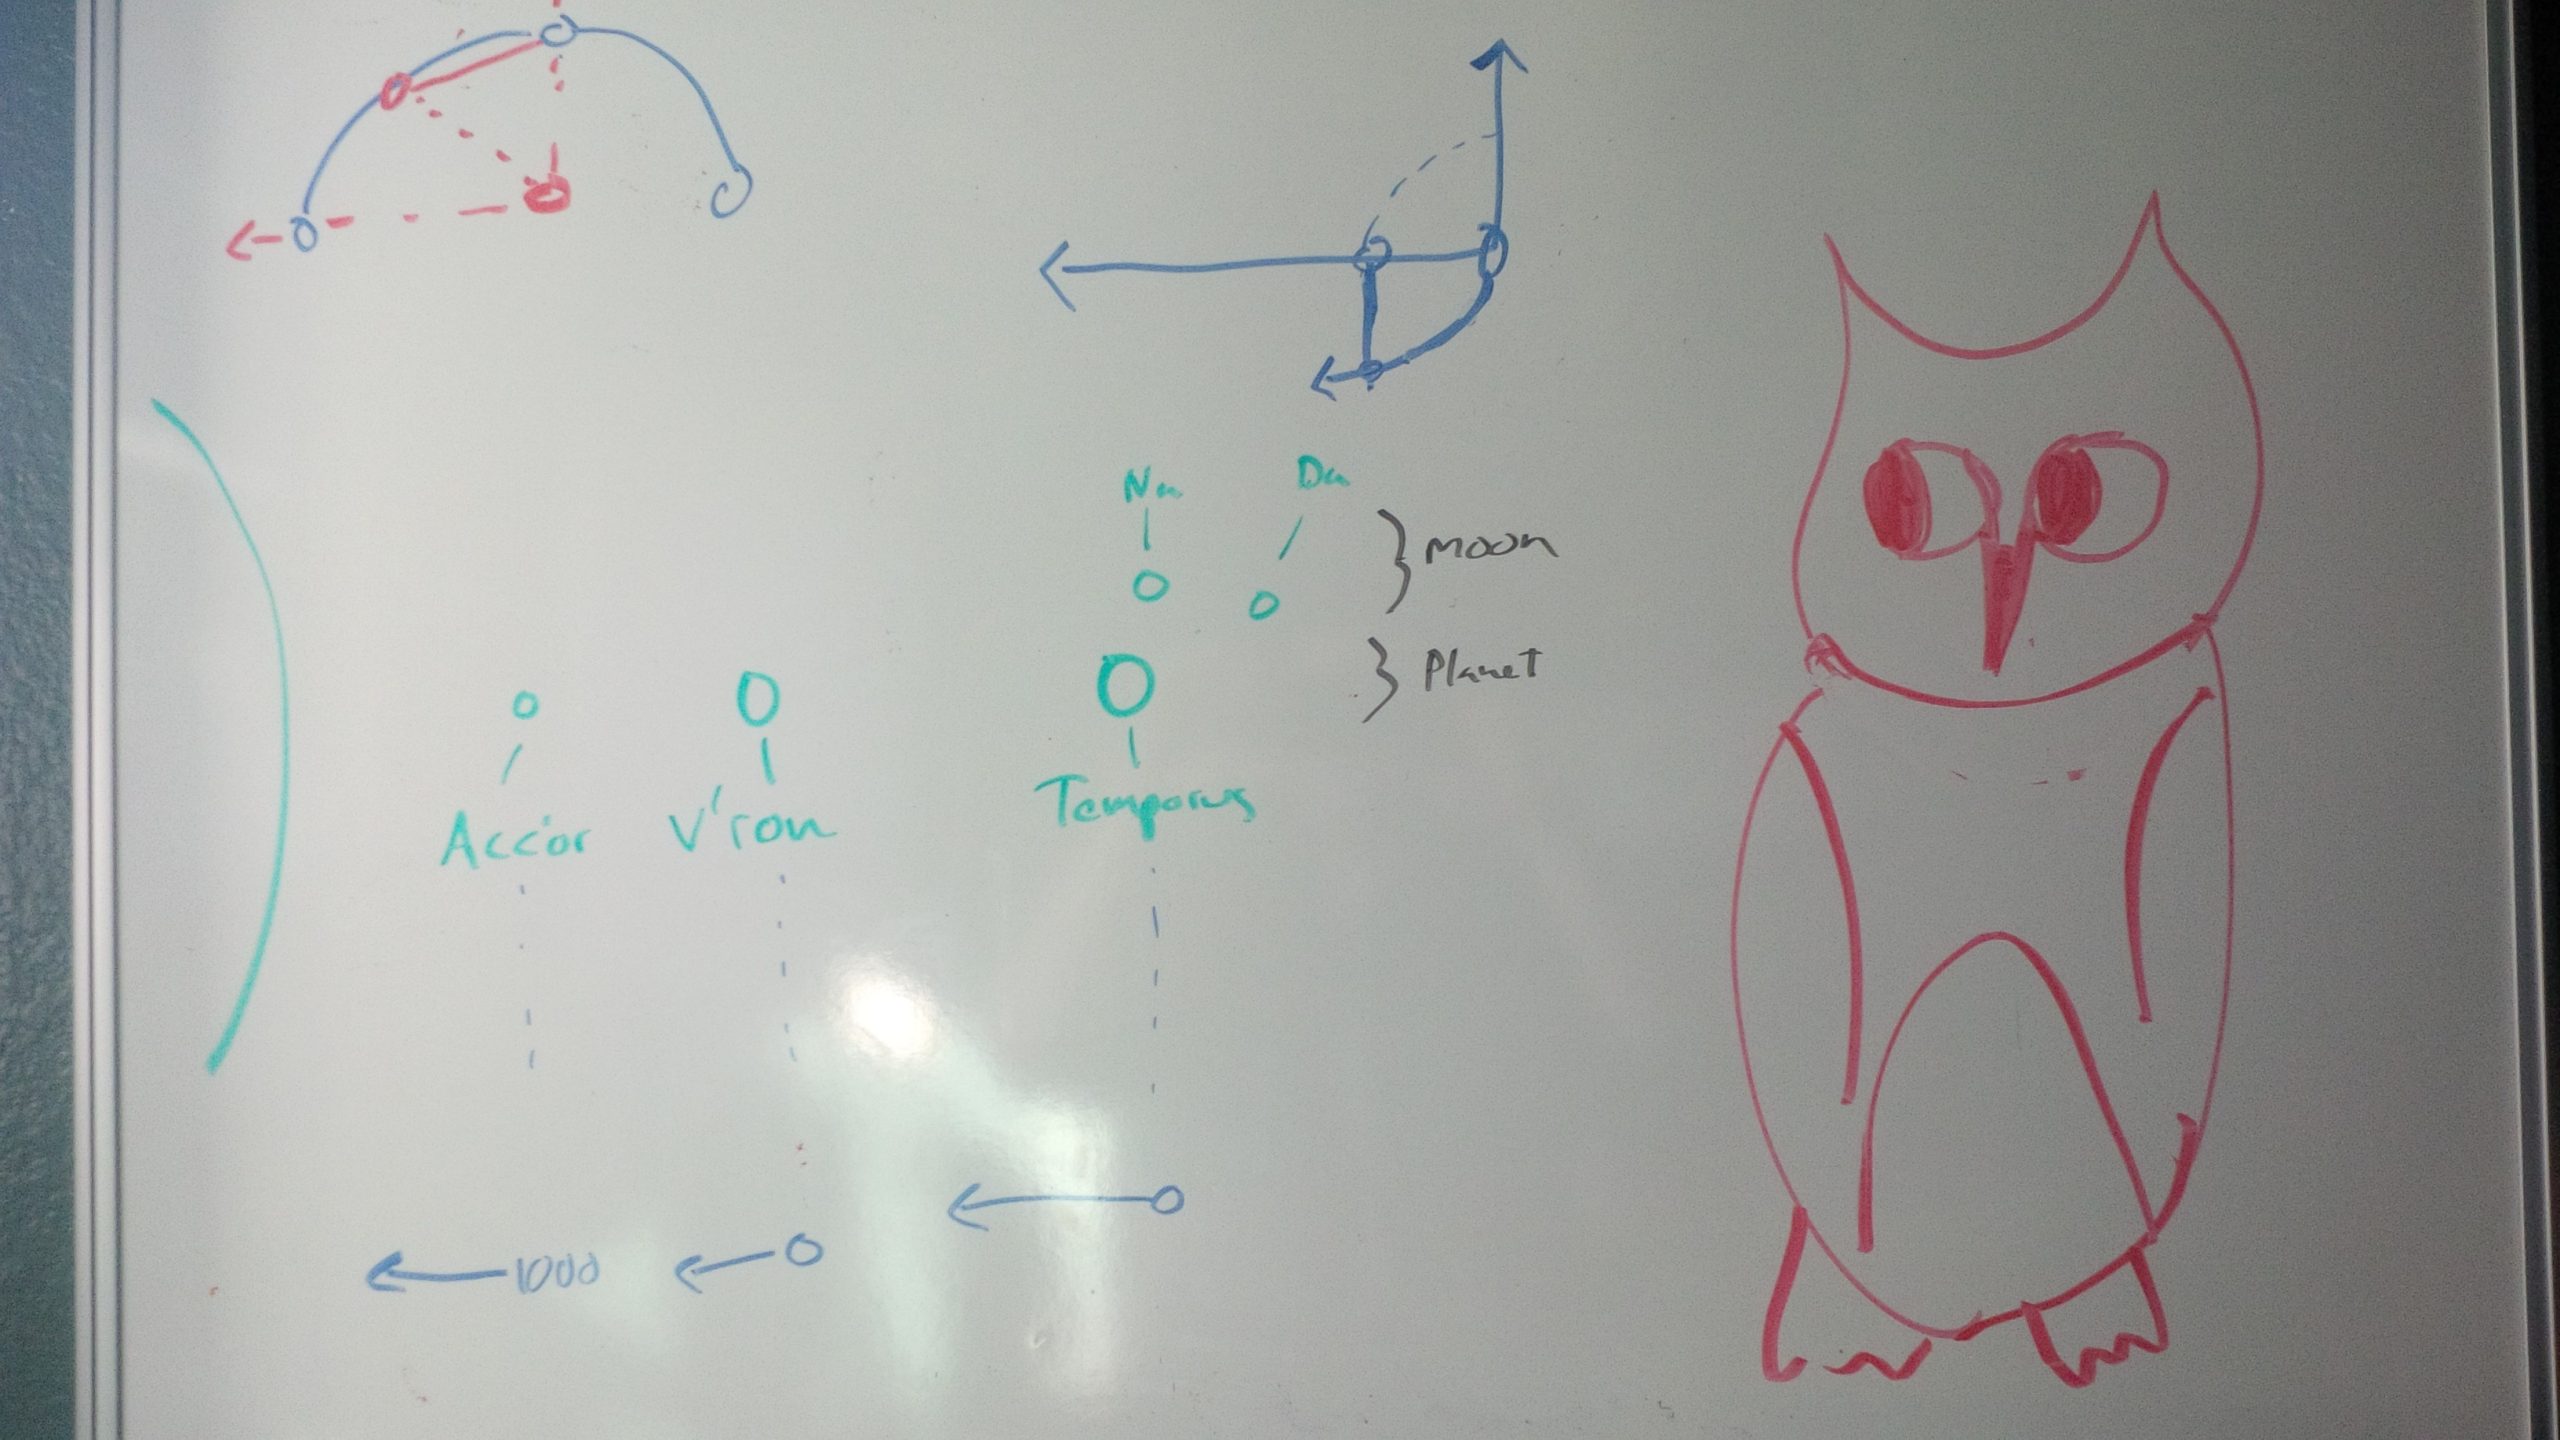 Na Da
moon
Planet
Acc'or V'ron Temporus
1000